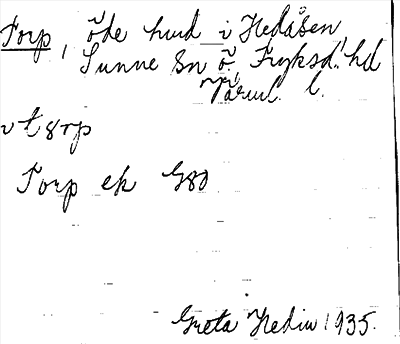 Torp, öde hmd i Hedåsen,
Sunne sn Ö. Fryksd. hd
Värml. l.
Torp ek G80
Greta Hedin 1935.